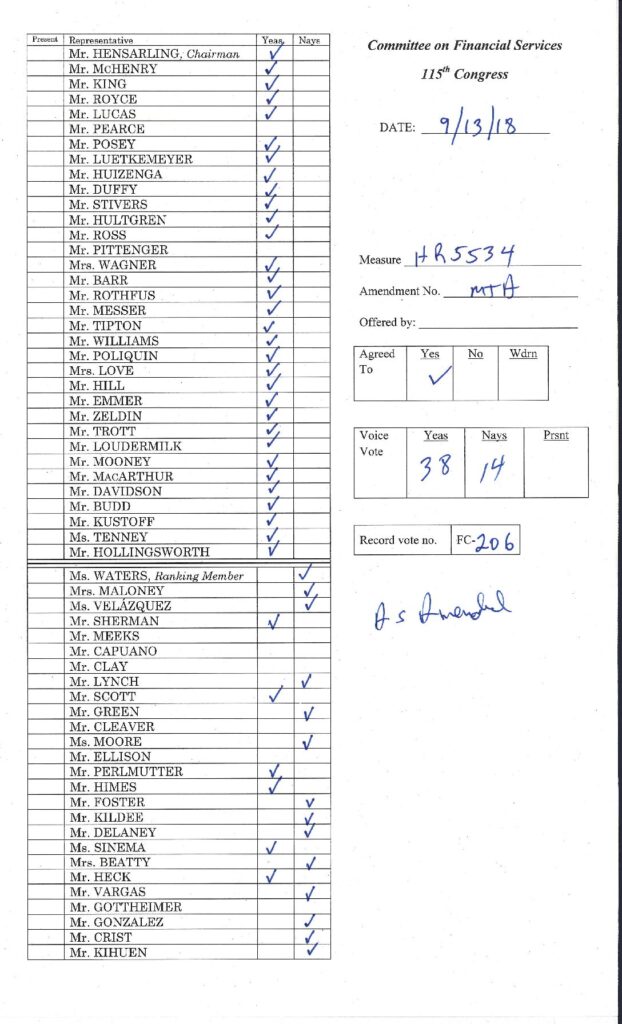 Present Representative Yeas Nays
Mr. HENSARLING, Chairman ✓
Mr. MCHENRY ✓
Mr. KING ✓
Mr. ROYCE ✓
Mr. LUCAS ✓
Mr. PEARCE
Mr. POSEY ✓
Mr. LUETKEMEYER ✓
Mr. HUIZENGA ✓
Mr. DUFFY ✓
Mr. STIVERS ✓
Mr. HULTGREN ✓
Mr. ROSS ✓
Mr. PITTENGER
Mrs. WAGNER ✓
Mr. BARR ✓
Mr. ROTHFUS ✓
Mr. MESSER ✓
Mr. TIPTON ✓
Mr. WILLIAMS ✓
Mr. POLIQUIN ✓
Mrs. LOVE ✓
Mr. HILL ✓
Mr. EMMER ✓
Mr. ZELDIN ✓
Mr. TROTT ✓
Mr. LOUDERMILK ✓
Mr. MOONEY ✓
Mr. MACARTHUR ✓
Mr. DAVIDSON ✓
Mr. BUDD ✓
Mr. KUSTOFF ✓
Ms. TENNEY ✓
Mr. HOLLINGSWORTH ✓
Ms. WATERS, Ranking Member ✓
Mrs. MALONEY ✓
Ms. VELÁZQUEZ ✓
Mr. SHERMAN ✓
Mr. MEEKS
Mr. CAPUANO
Mr. CLAY
Mr. LYNCH ✓
Mr. SCOTT ✓
Mr. GREEN ✓
Mr. CLEAVER
Ms. MOORE ✓
Mr. ELLISON
Mr. PERLMUTTER ✓
Mr. HIMES ✓
Mr. FOSTER ✓
Mr. KILDEE ✓
Mr. DELANEY ✓
Ms. SINEMA ✓
Mrs. BEATTY ✓
Mr. HECK ✓
Mr. VARGAS ✓
Mr. GOTTHEIMER
Mr. GONZALEZ ✓
Mr. CRIST ✓
Mr. KIHUEN ✓
Committee on Financial Services
115th Congress
DATE: 9/13/18
Measure HR5534
Amendment No. MTA
Offered by:
Agreed Yes No Wdrn
To ✓
Voice Yeas Nays Prsnt
Vote 38 14
Record vote no. FC-206
As Amended